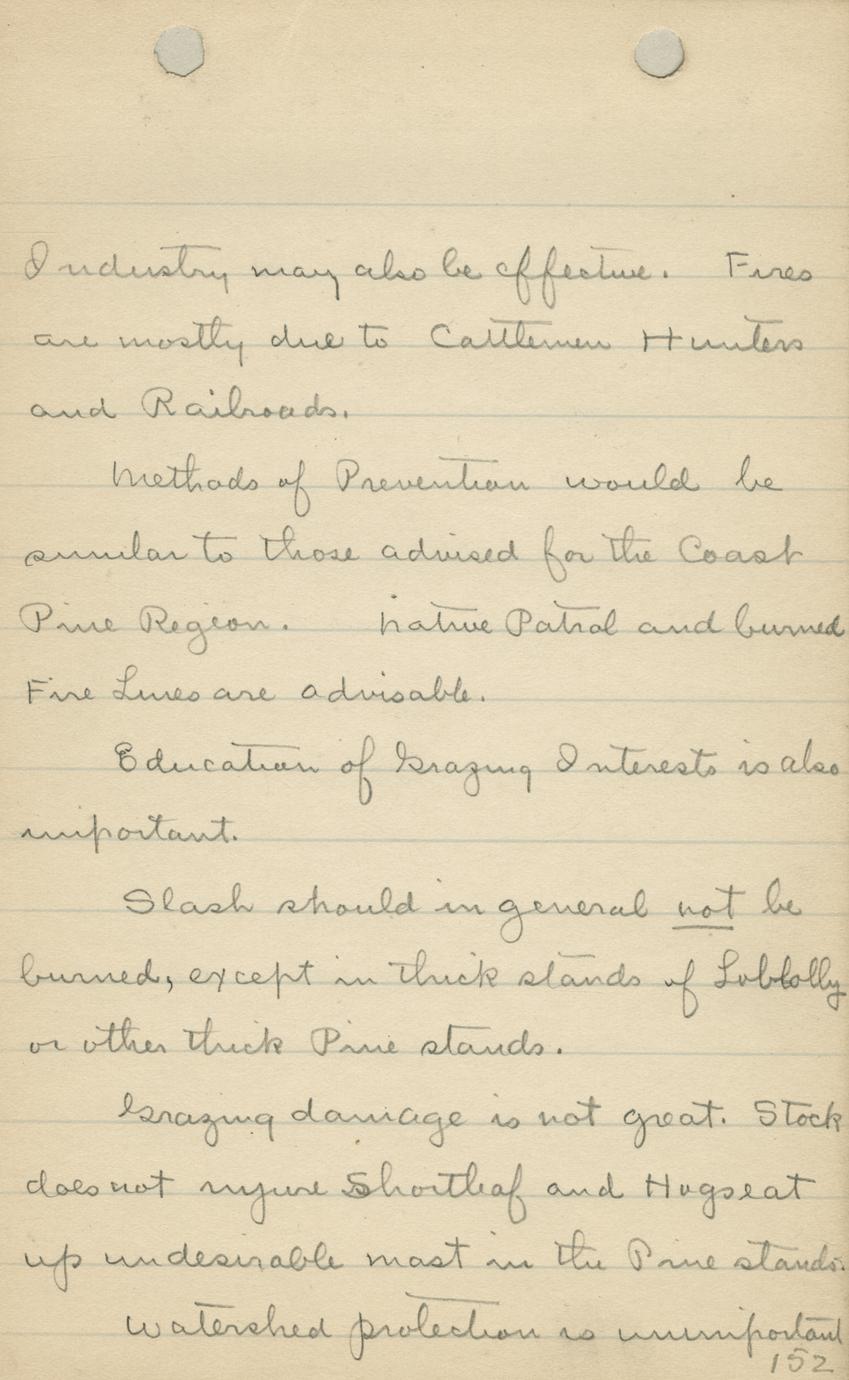 Industry may also be effective. Fires
are mostly due to Cattlemen Hunters
and Railroads.
Methods of Prevention would be
similar to those advised for the Coast
Pine Region. Native Patrol and burned
Fire Lines are advisable.
Education of Grazing Interests is also
important.
Slash should in general not be
burned, except in thick stands of Loblolly
or other thick Pine stands.
Grazing damage is not great. Stock
does not injure Shortleaf and Hogs eat
up undesirable mast in the Pine stands.
Watershed protection is unimportant
152